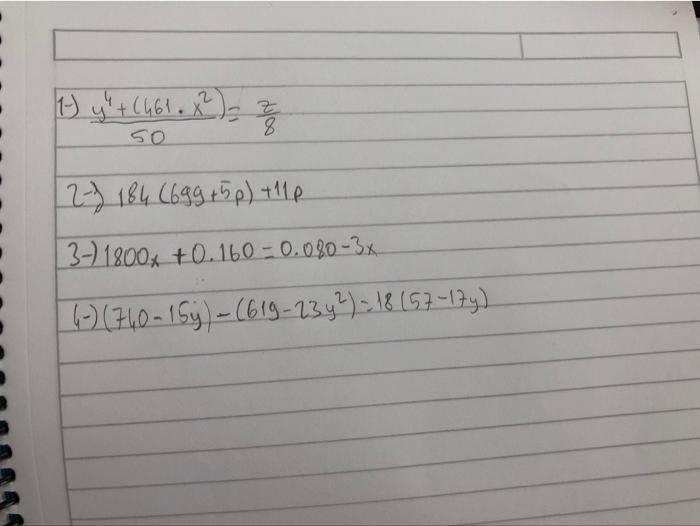 1-) y⁴+(461.x²)/50 = z/8
2-) 184(699+5p)+11p
3-) 1800x+0.160=0.080-3x
4-) (740-15y)-(619-23y²)=18(57-17y)